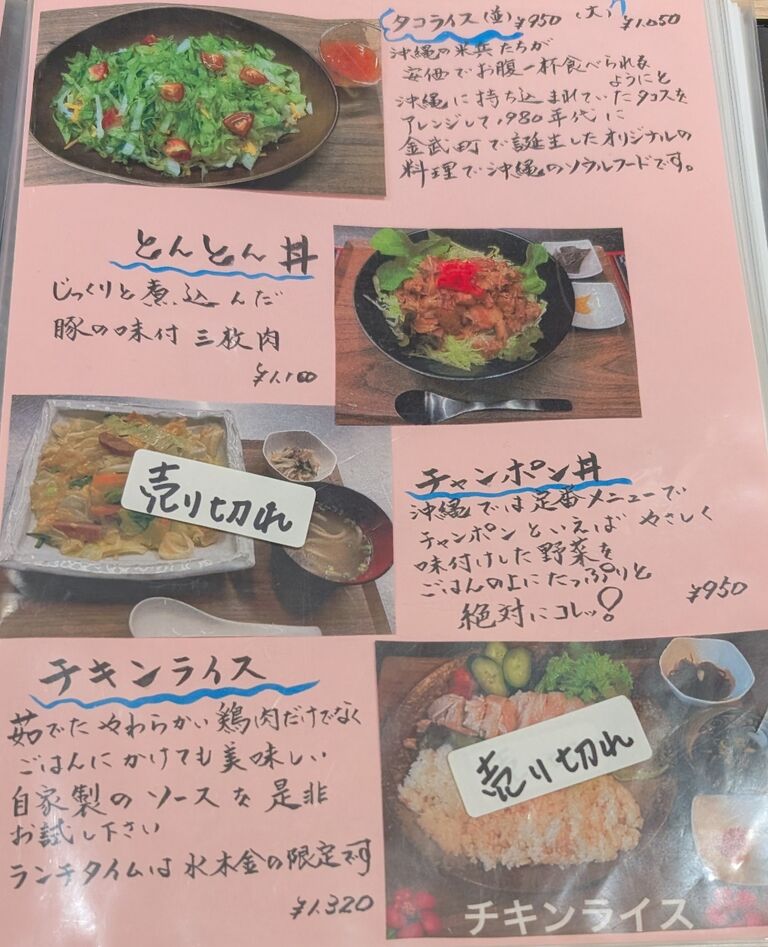 タコライス(並)¥950 (大)¥1,050
沖縄の米兵たちが
安価でお腹一杯食べられる
ようにと
沖縄に持ち込まれていたタコスを
アレンジして1980年代に
金武町で誕生したオリジナルの
料理で沖縄のソウルフードです。
とんとん丼
じっくりと煮込んだ
豚の味付三枚肉
¥1,100
売り切れ
チャンポン丼
沖縄では定番メニューで
チャンポンといえばやさしく
味付けした野菜を
ごはんの上にたっぷりと
絶対にコレッ!
¥950
チキンライス
茹でたやわらかい鶏肉だけでなく
ごはんにかけても美味しい
自家製のソースを是非
お試し下さい
ランチタイムは水木金の限定です
¥1,320
売り切れ
チキンライス